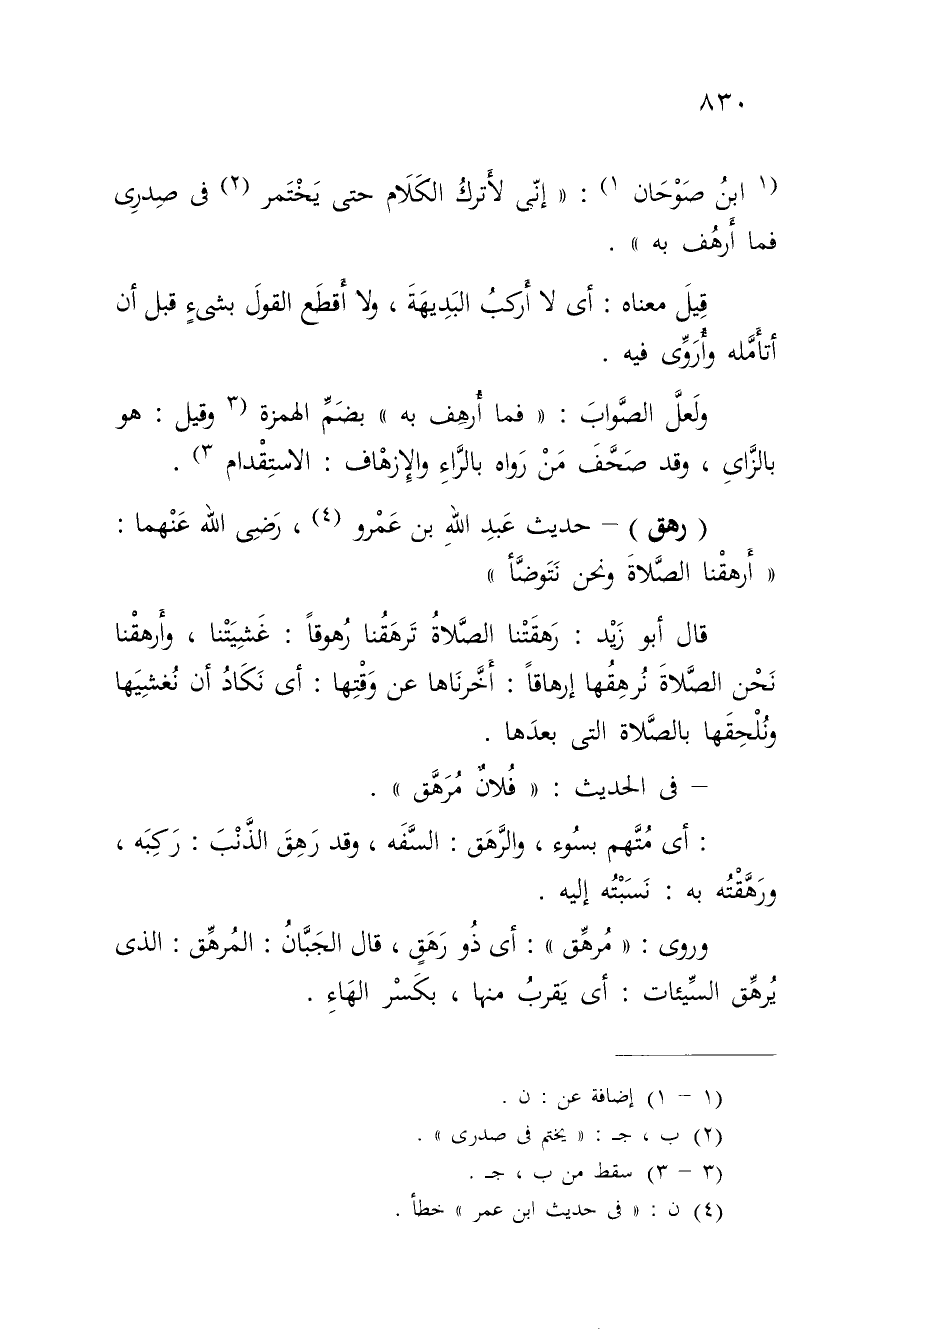 ٨٣٠
(١ ابنُ صَوْحَان ١) : « إنّى لأَتركُ الكَلَام حتى يَخْتَمر (٢) فى صدرِى
فما أَرهُف به » .
قِيلَ معناه : أى لا أَركبُ البَدِيهَةَ ، ولا أَقطَع القولَ بشىءٍ قبل أن
أتأَمَّله وأُرَوِّى فيه .
ولَعلَّ الصَّوابَ : « فما أُرهِف به » بضَمِّ الهمزة (٣ وقيل : هو
بالزَّاىِ ، وقد صَحَّفَ مَنْ رَواه بالرَّاءِ والإِزهْاف : الاستِقْدام ٣) .
( رهق ) – حديث عَبدِ اللهِ بن عَمْرو (٤) ، رَضِى الله عَنْهما :
« أَرهقْنا الصَّلاةَ ونحن نَتَوضَّأ »
قال أبو زَيْد : رَهقَتْنا الصَّلاةُ تَرهَقُنا رُهوقاً : غَشِيَتْنا ، وأَرهقْنا
نَحْن الصَّلاةَ نُرهِقُها إرهاقاً : أَخَّرنَاها عن وَقْتِها : أى نَكَادُ أن نُغشيَها
ونُلْحِقَها بالصَّلاة التى بعدَها .
– فى الحديث : « فُلانٌ مُرَهَّق » .
: أى مُتَّهم بسُوء ، والرَّهَق : السَّفَه ، وقد رَهِقَ الذَّنْبَ : رَكِبَه ،
ورَهَّقْتُه به : نَسَبْتُه إليه .
وروى : « مُرهِّق » : أى ذُو رَهَقٍ ، قال الجَبَّانُ : المُرهِّق : الذى
يُرهِّق السيِّئات : أى يَقربُ منها ، بكَسْر الهَاءِ .
(١ – ١) إضافة عن : ن .
(٢) ب ، جـ : « يختم فى صدرى » .
(٣ – ٣) سقط من ب ، جـ .
(٤) ن : « فى حديث ابن عمر » خطأ .